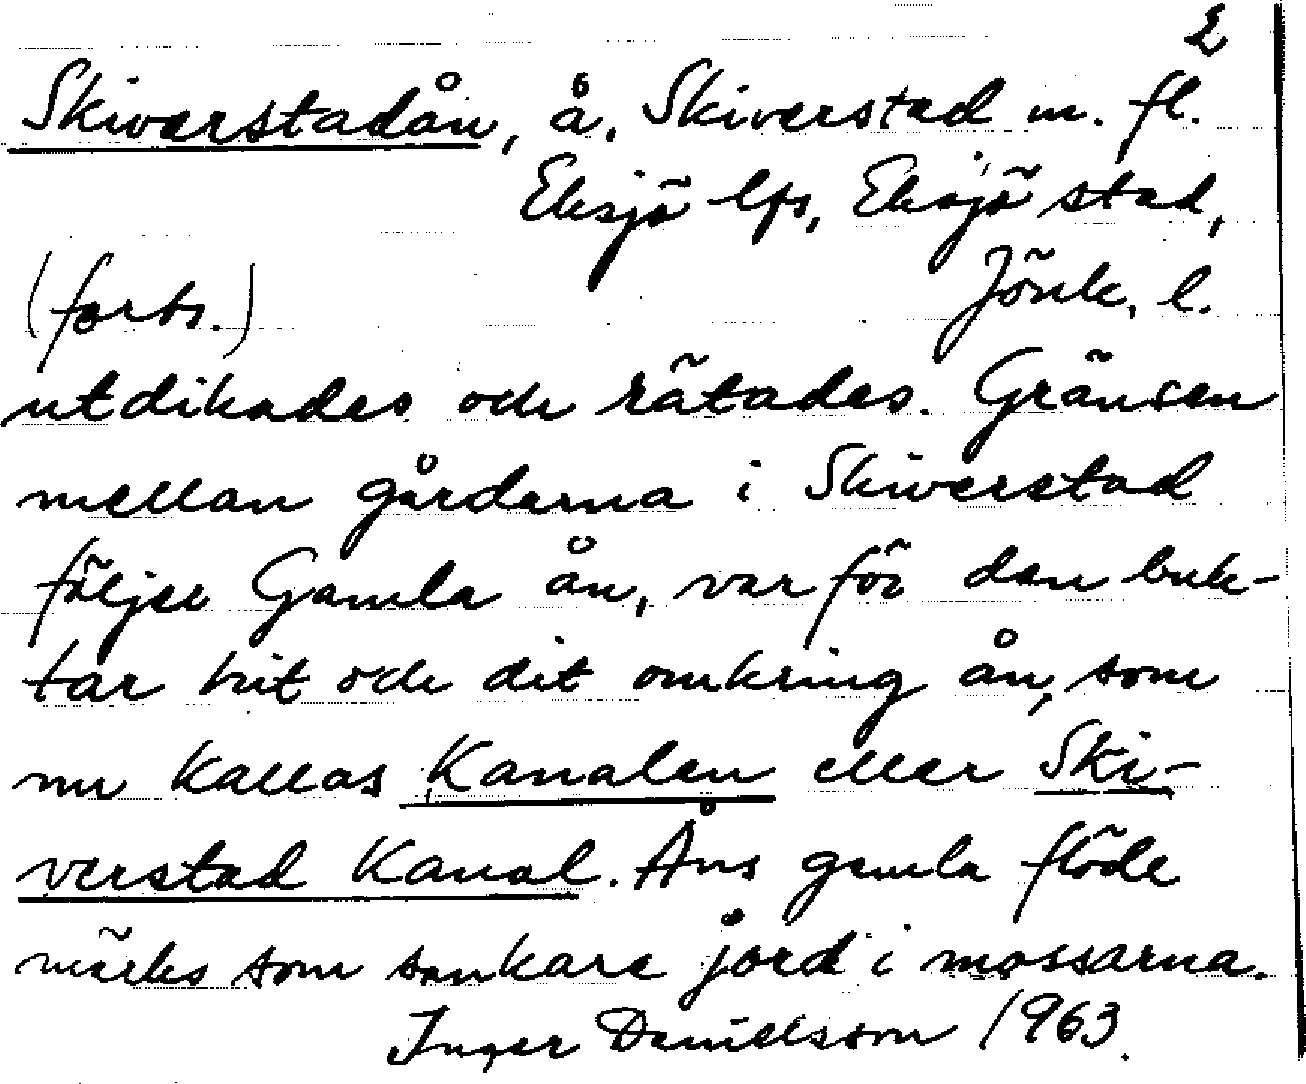 2
Skiverstadån, å, Skiverstad m. fl.
Eksjö lfs, Eksjö stad,
Jönk. l.
(forts.)
utdikades och rätades. Gränsen
mellan gårdarna i Skiverstad
följer Gamla ån, varför den buk-
tar hit och dit omkring ån, som
nu kallas Kanalen eller Ski-
verstad Kanal. Åns gamla flöde
märks som sankare jord i mossarna.
Inger Danielsson 1963.